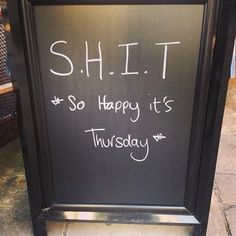 S.H.I.T
So Happy it's
Thursday